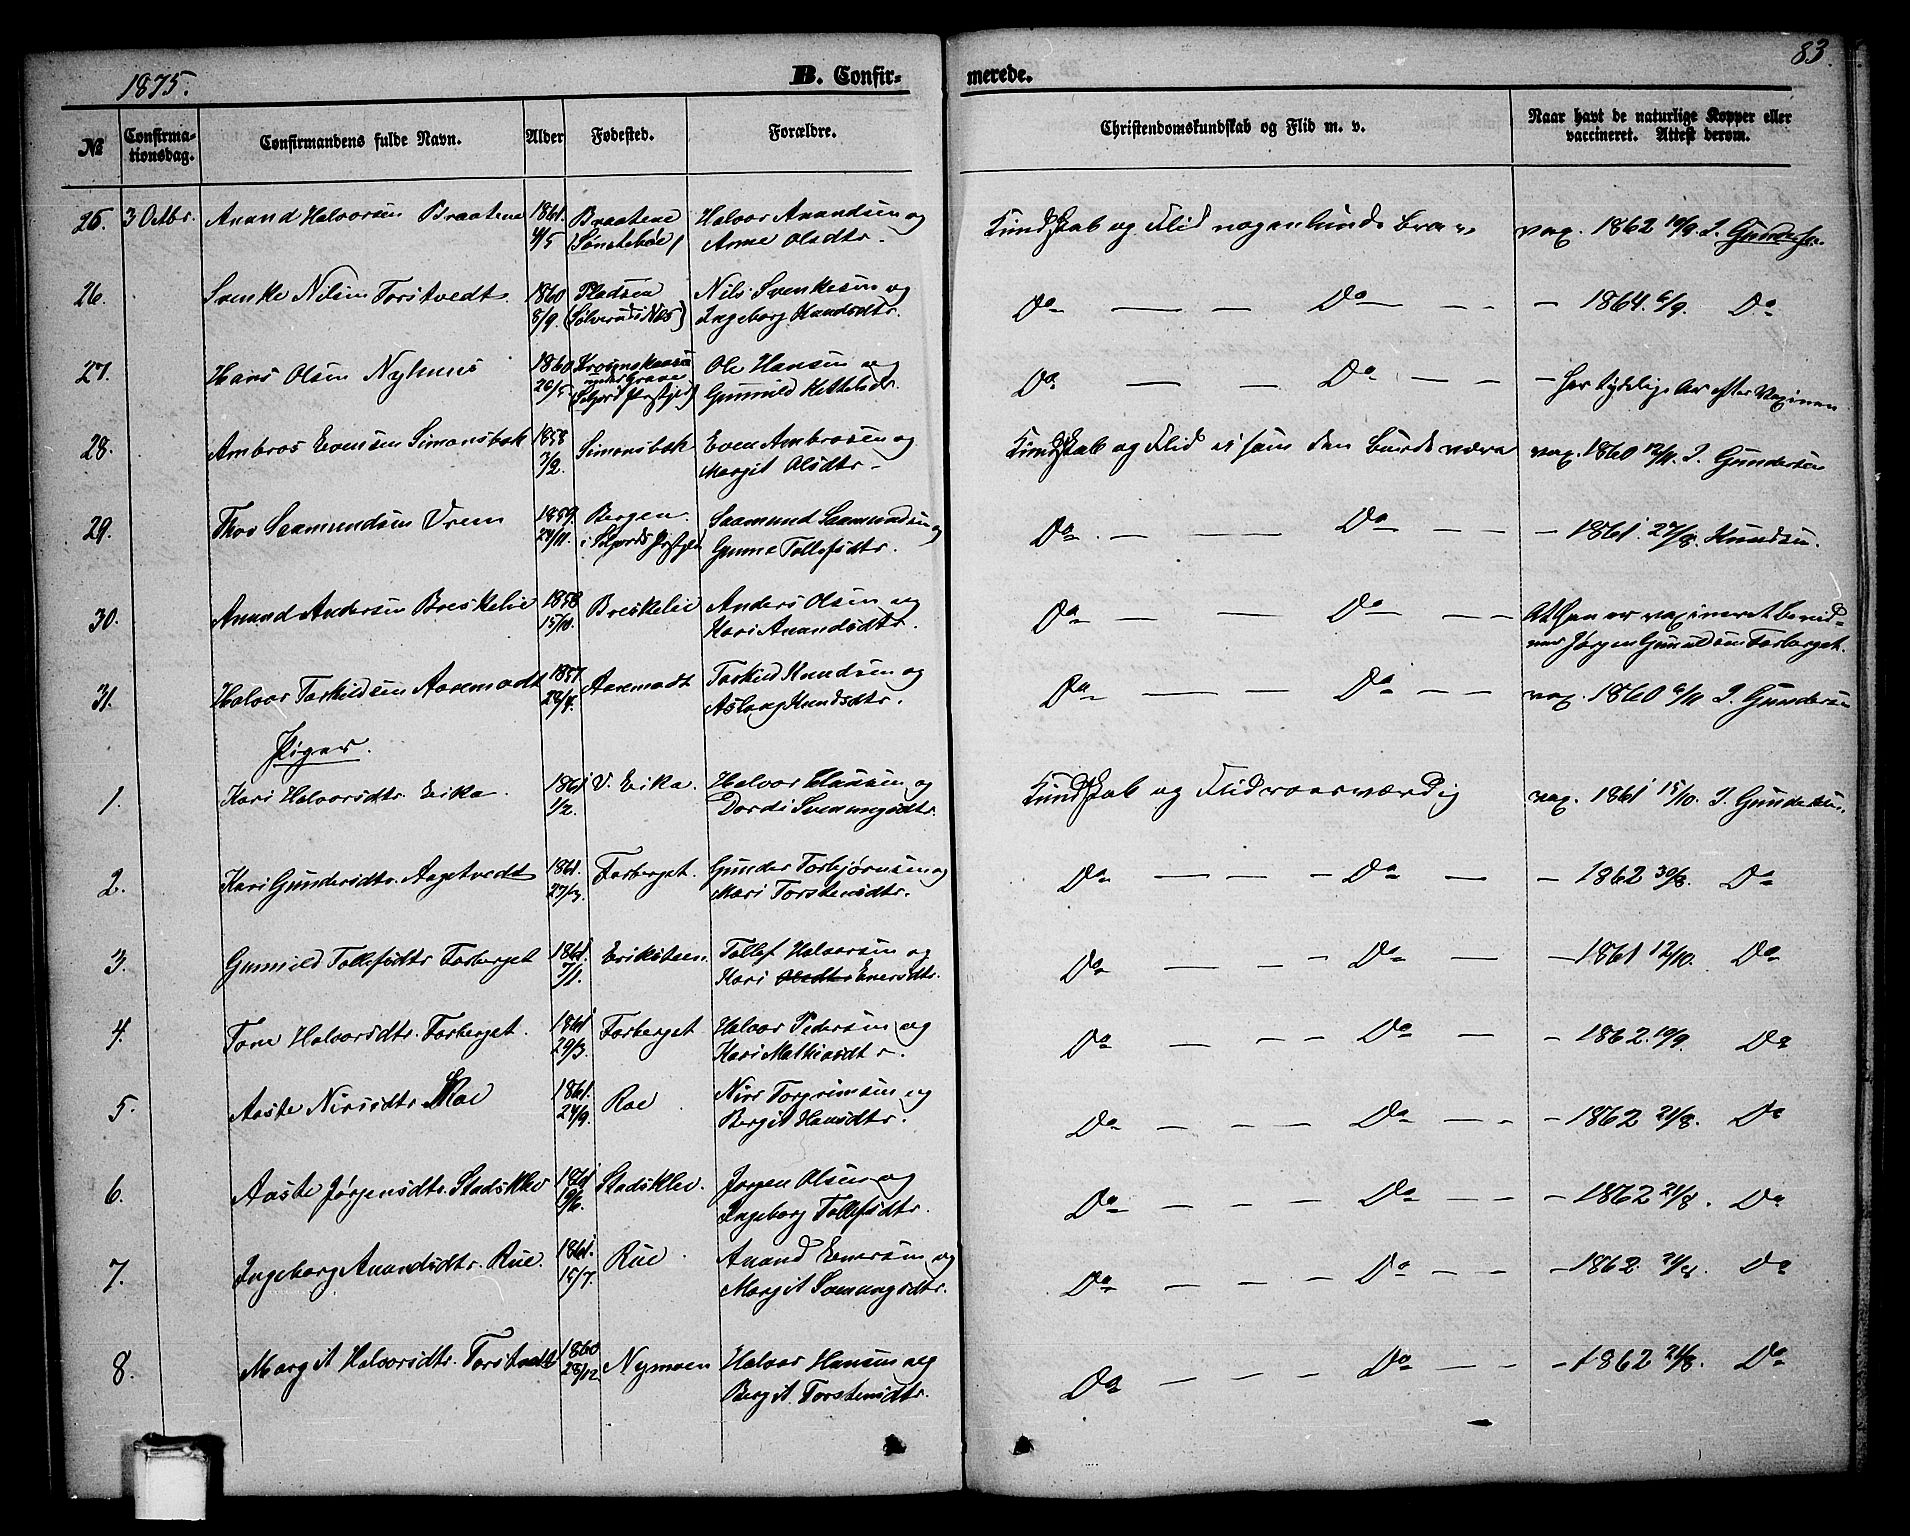 1875.
B. Confir-
merede.
83.
No
Confirma-
tionsdag.
Confirmandens fulde Navn.
Alder
Fødested.
Forældre.
Christendomskundskab og Flid m. v.
Naar havt de naturlige Kopper eller
vaccineret. Attest derom.
25. 3 Octbr. Anund Halvorsen Braatene 1861. Braatene Halvor Anundsen og Kundskab og Flid nogenlunde bra vax. 1862 19/9. I. Gundersen
4/5 (Sønstebøe) Anne Olsdtr.
26. Svenke Nilsen Torstvedt. 1860 Pladsen Nils Svenkesen og Do — — Do — — - 1864. 6/9. Do
8/9. (Sølverud i Næs) Ingeborg Knudsdtr.
27. Hans Olsen Nyhuus 1860 Ole Hansen og Do — — Do — — - har tydelige Ar efter Vaxinen
20/5 under Grave Gunnild Kittelsdr.
(Seljord Prstgjld)
28. Ambros Evensen Simonsbæk 1858 Simonsbæk Even Ambrosen og Kundskab og Flid ei som den burde være vax. 1860 12/11. I. Gundersen
3/2. Margit Olsdtr.
29. Thor Saamundsen Vreim 1859. Bergen Saamund Saamundsen og Do — — — Do — - 1861. 27/8. Knudsen.
24/11. i Seljords Prstgjld Gunne Tollefsdtr.
30. Anund Andersen Breskelie 1858 Breskelie Anders Olsen og Do — — Do — — At han er vaxineret bevid-
15/11. Kari Anundsdtr. ner Jørgen Gunuldsen Forberget.
31. Halvor Torkildsen Aasemodt 1857. Aasemodt Torkild Knudsen og Do — — Do — — vax. 1860 6/11 I. Gundersen
29/4. Aslaug Knudsdtr.
Piger.
1. Kari Halvorsdtr. Eika. 1861 V. Eika. Halvor Clausen og Kundskab og Flid roesværdig vax. 1861 15/10. I. Gundersen.
1/2. Dordi Svenungsdtr.
2. Kari Gundersdtr. Aagetvedt 1861. Forberget. Gunder Torbjørnsen og Do — — - Do — - 1862 30/8. Do
27/3. Mari Torstensdtr.
3. Gunnild Tollefsdtr Forberget 1861. Eriksteen. Tollef Halvorsen og Do — — - Do — - 1861 12/10. Do
7/1. Kari Olsdtr Enersdtr.
4. Tone Halvorsdtr. Forberget. 1861 Forberget Halvor Pedersen og Do — — - Do — - 1862. 19/9. Do
29/3. Kari Mathiasdtr.
5. Aaste Nirisdtr. Roe 1861. Roe Nirs Torgrimsen og Do — — - - Do — - - 1862 21/8. Do
24/9. Bergit Hansdtr.
6. Aaste Jørgensdtr. Stadsklev 1861 Stadsklev. Jørgen Olsen og Do — — — Do — - - 1862 21/8. Do
19/6. Ingeborg Tollefsdtr.
7. Ingeborg Anundsdtr. Rue. 1861. Rue Anund Enersen og Do — — - - Do — - - 1862. 21/8. Do
15/7. Margit Svenungsdtr.
8. Margit Halvorsdtr. Torstvedt 1860 Nymoen Halvor Hansen og Do — — — - Do — - - 1862 21/8. Do
28/12 Bergit Torstensdtr.